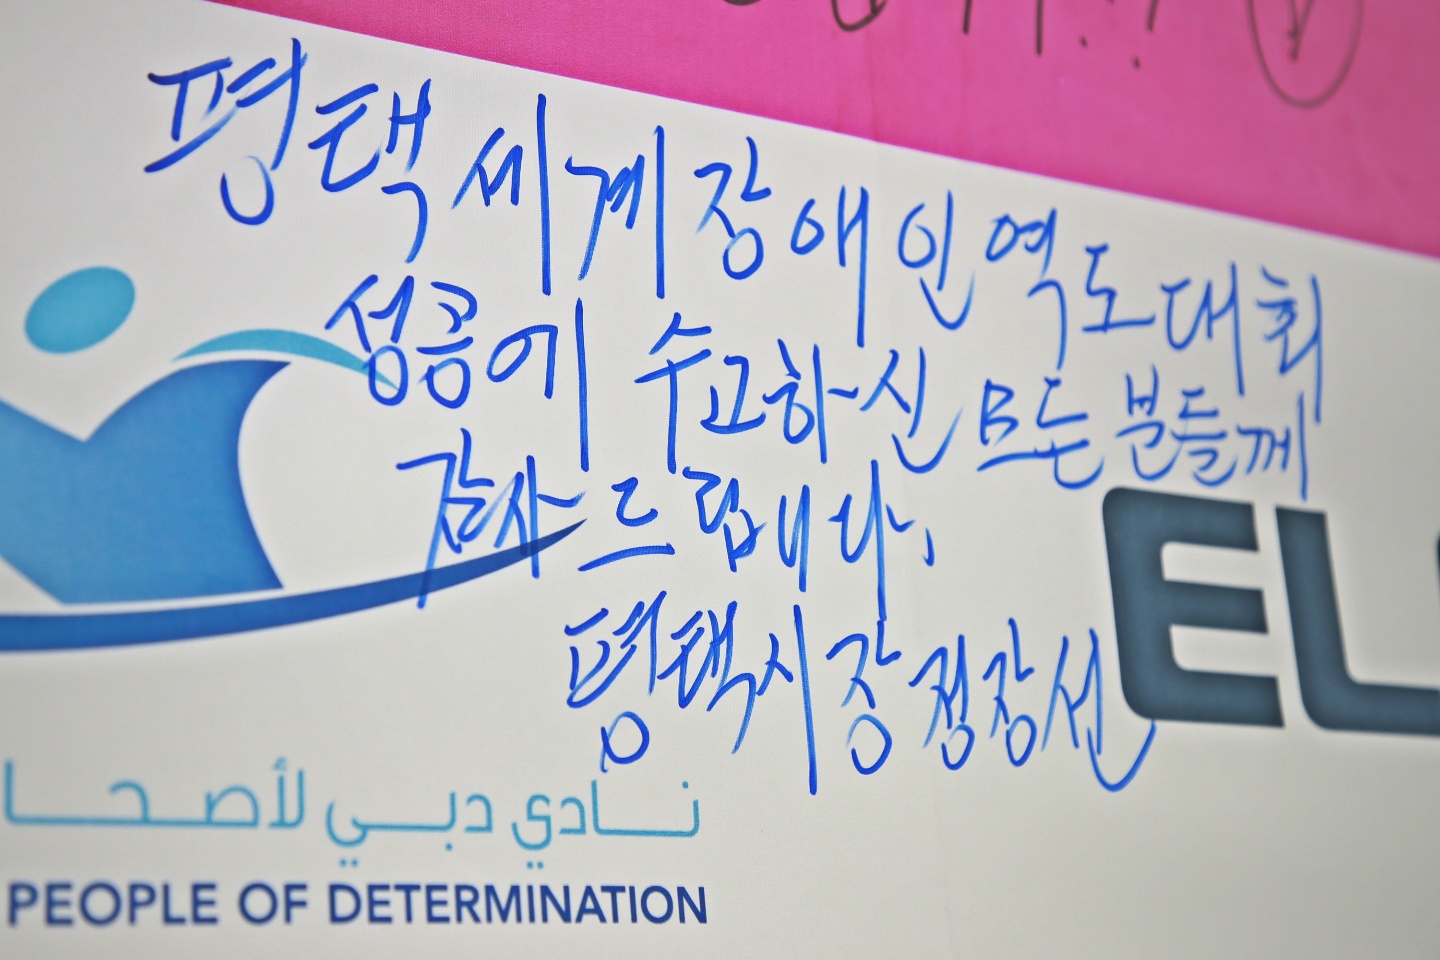 평택 세계 장애인 역도대회
성공에 수고하신 모든 분들께
감사 드립니다.
평택시장 정장선
EL
نادي دبي لأصحا
PEOPLE OF DETERMINATION